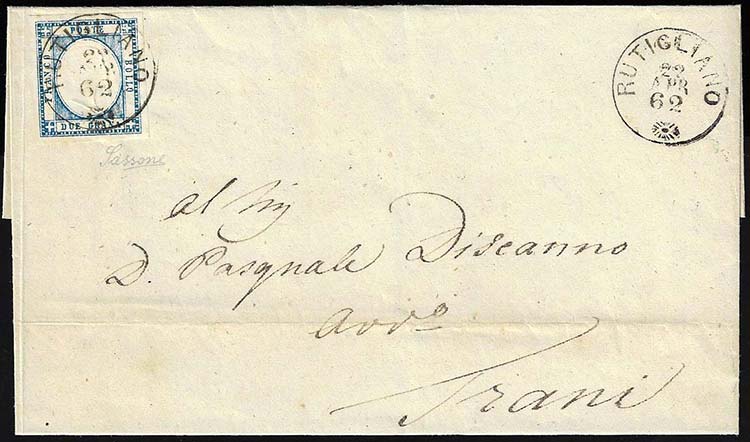 FRANCO POSTE BOLLO
DUE GRANA
RUTIGLIANO
22
APR
62
RUTIGLIANO
22
APR
62
Sassone
al Sig
D. Pasquale Discanno
Avv.o
Trani